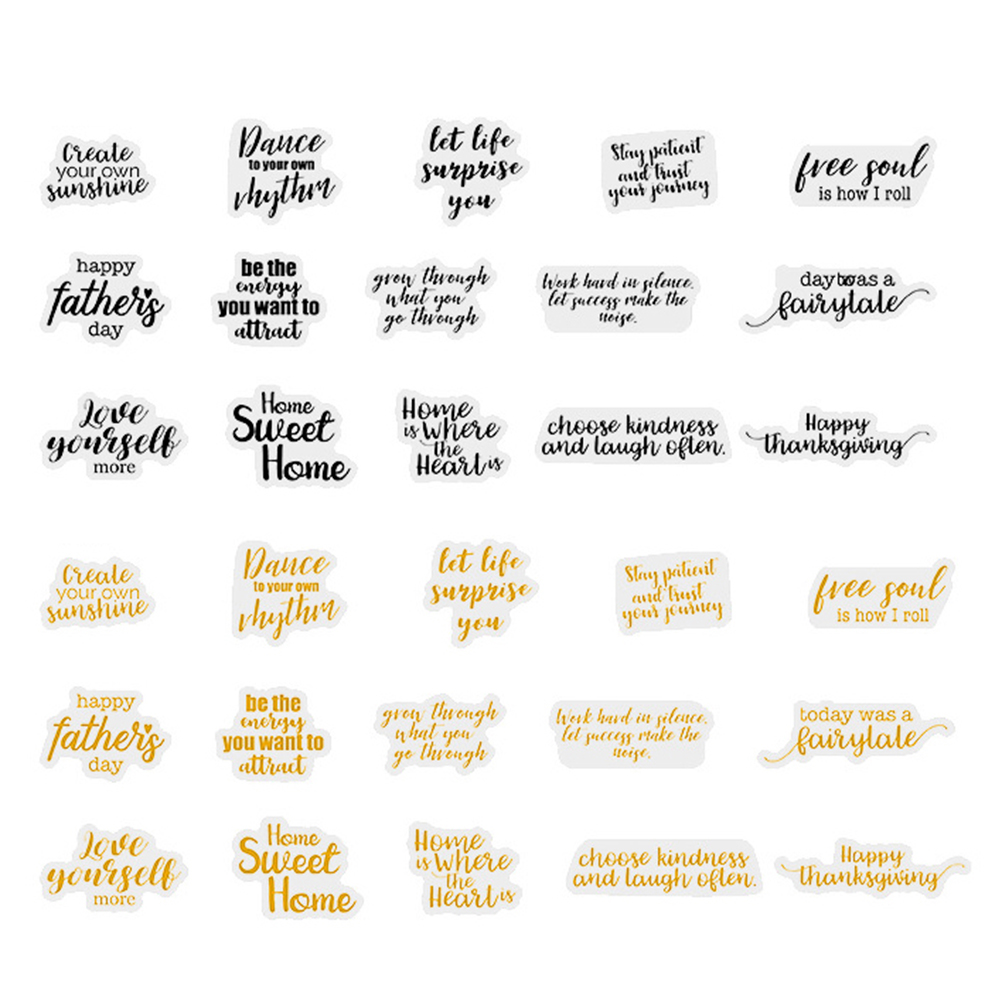 Create
your own
sunshine
Dance
to your own
rhythm
let life
surprise
you
Stay patient
and trust
your journey
free soul
is how I roll
happy
father's
day
be the
energy
you want to
attract
grow through
what you
go through
Work hard in silence,
let success make the
noise.
was a
fairytale
Love
yourself
more
Home
Sweet
Home
Home
is Where
the
Heart is
choose kindness
and laugh often.
Happy
Thanksgiving
Create
your own
sunshine
Dance
to your own
rhythm
let life
surprise
you
Stay patient
and trust
your journey
free soul
is how I roll
happy
father's
day
be the
energy
you want to
attract
grow through
what you
go through
Work hard in silence,
let success make the
noise.
today was a
fairytale
Love
yourself
more
Home
Sweet
Home
Home
is Where
the
Heart is
choose kindness
and laugh often.
Happy
Thanksgiving